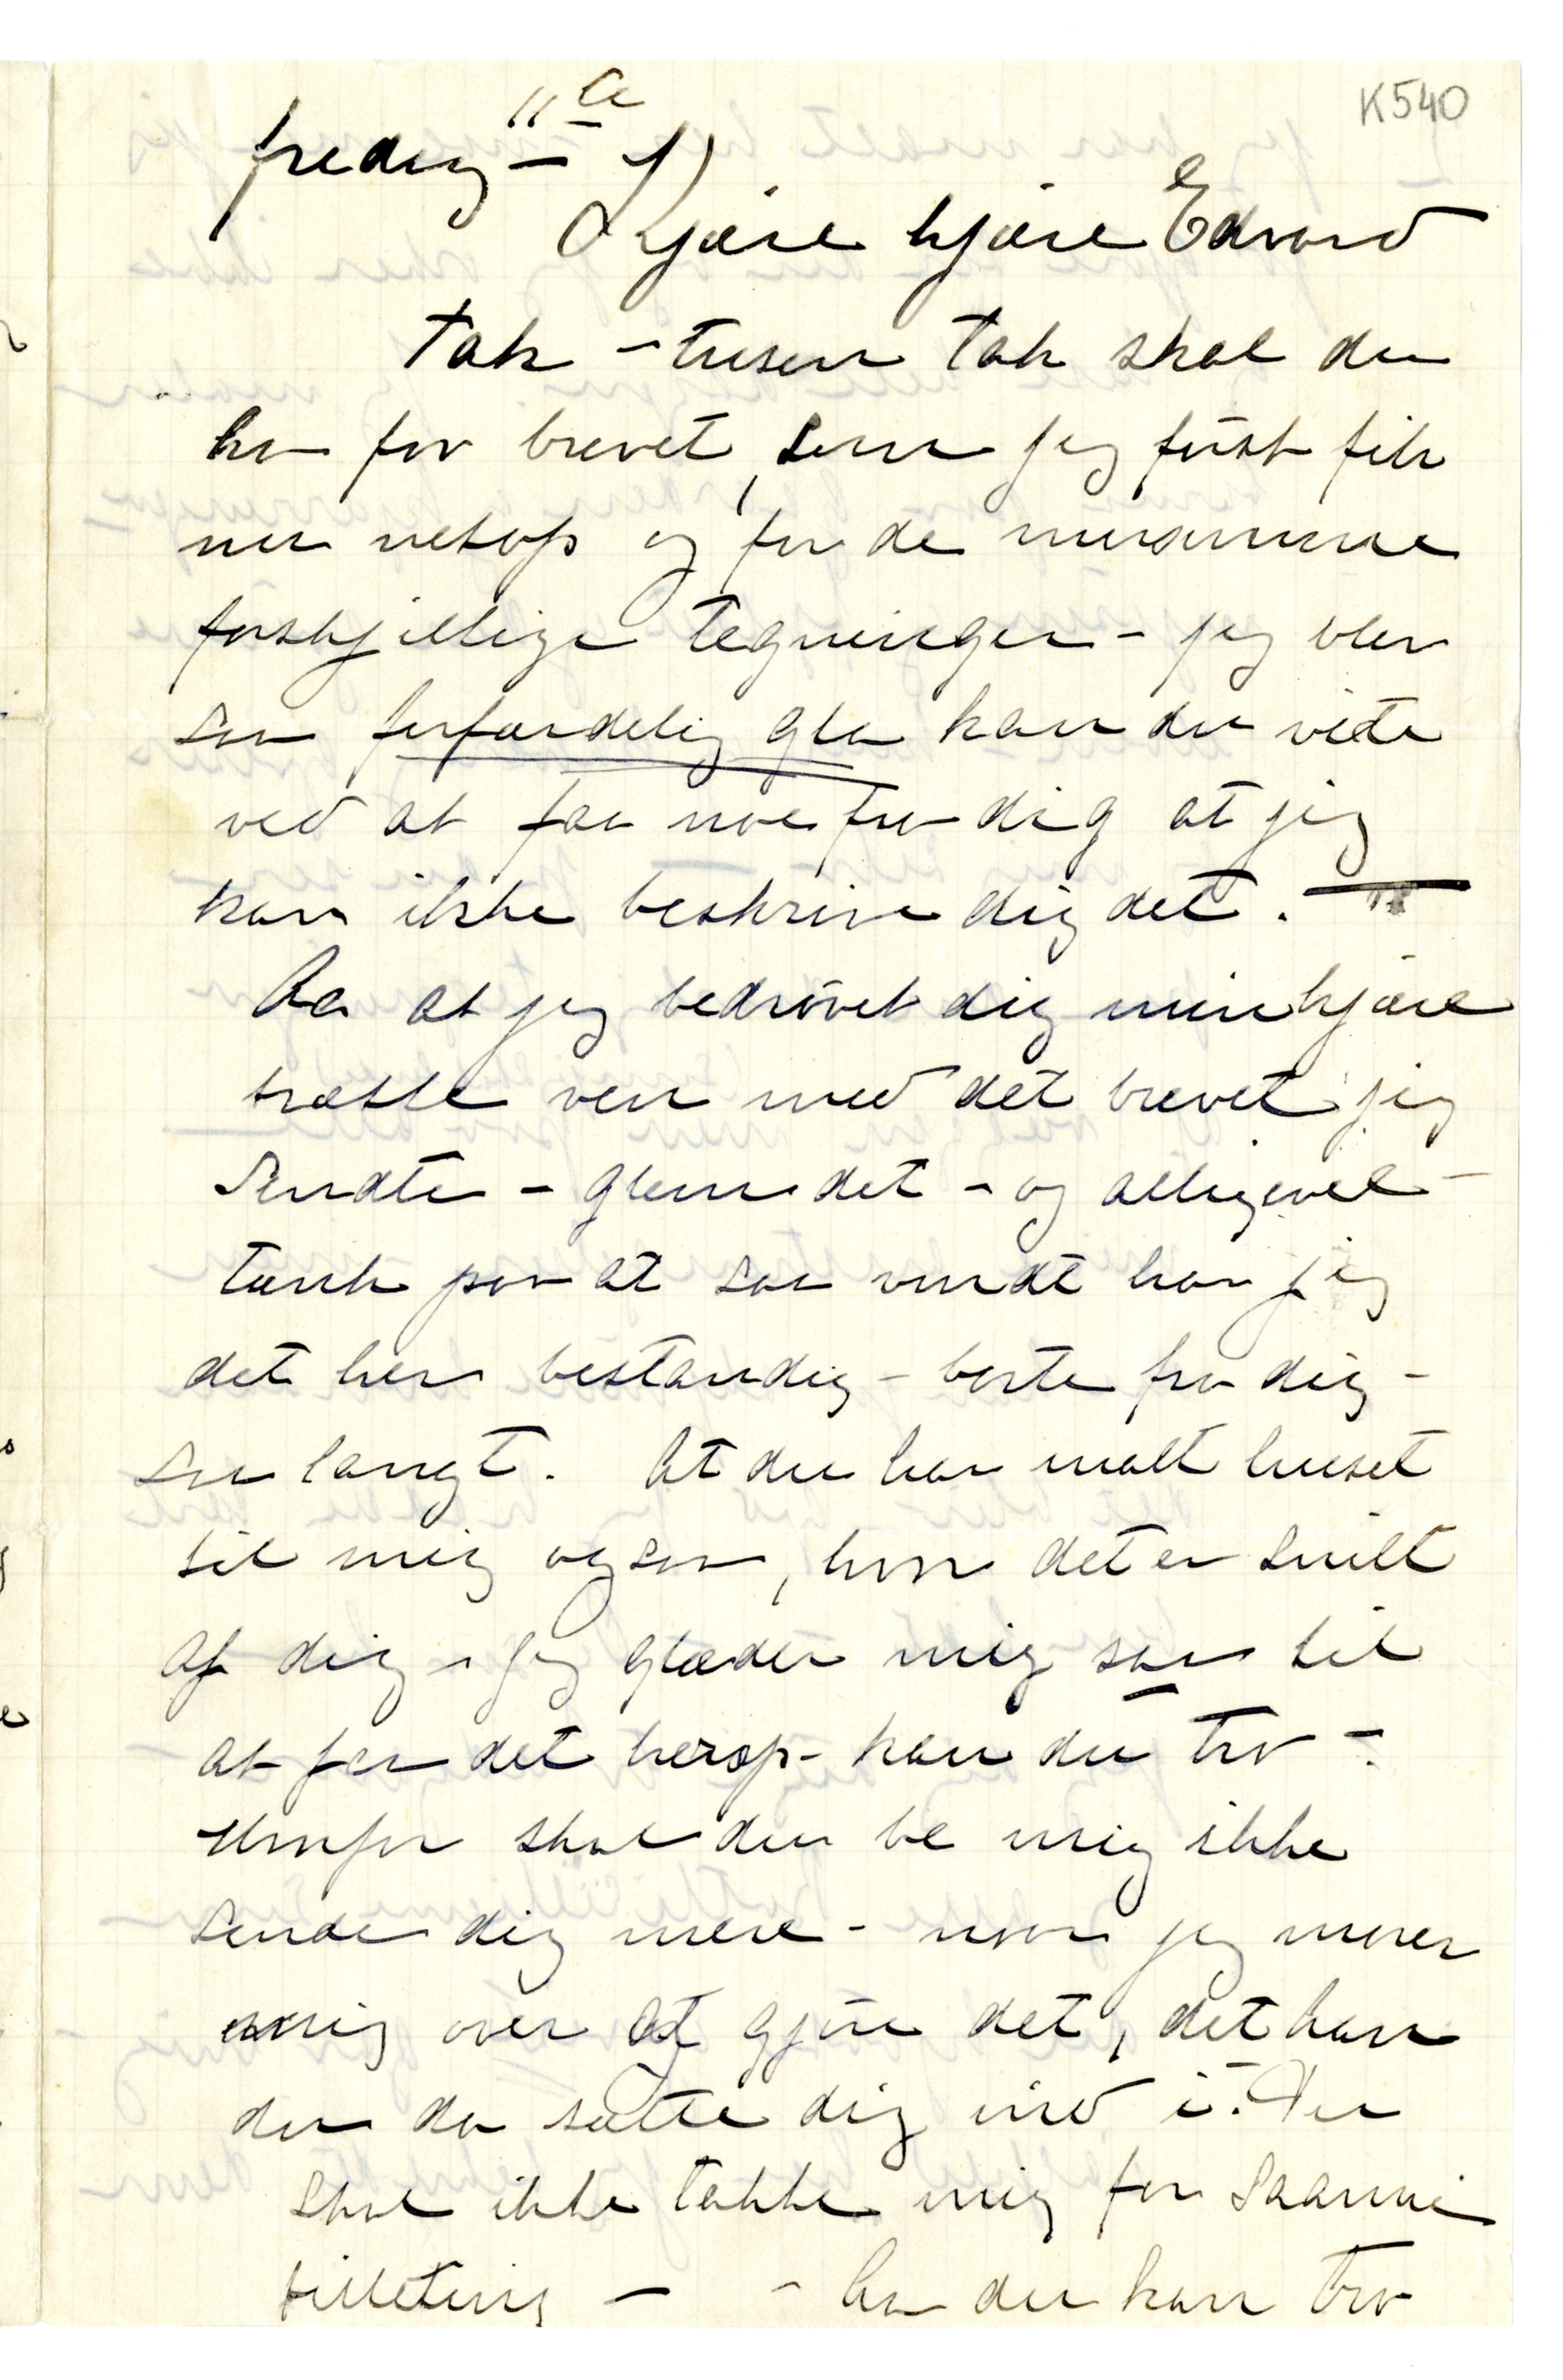 K540
fredag – 11te
Kjære kjære Edvard
Tak – tusen tak skal du
ha for brevet, som jeg først fik
nu netop og for de morsomme
forskjellige tegninger – jeg blev
saa forfærdelig gla kan du vite
ved at faa noe fra dig at jeg
kan ikke beskrive dig det. –
Aa at jeg bedrøvet dig min kjære
trætte ven med det brevet jeg
sendte – glem det – og alligevel –
tænk paa at saa vondt har jeg
det her bestandig – borte fra dig –
saa langt. At du har malt huset
til mig ogsaa, hvor det er snilt
af dig – jeg glæder mig saa til
at faa det herop – kan du tro –
Hvorfor skal du be mig ikke
sende dig mere – naar jeg morer
mig over at gjøre det, det kan
du da sætte dig ind i. Du
skal ikke takke mig for saanne
filleting – – Aa du kan tro